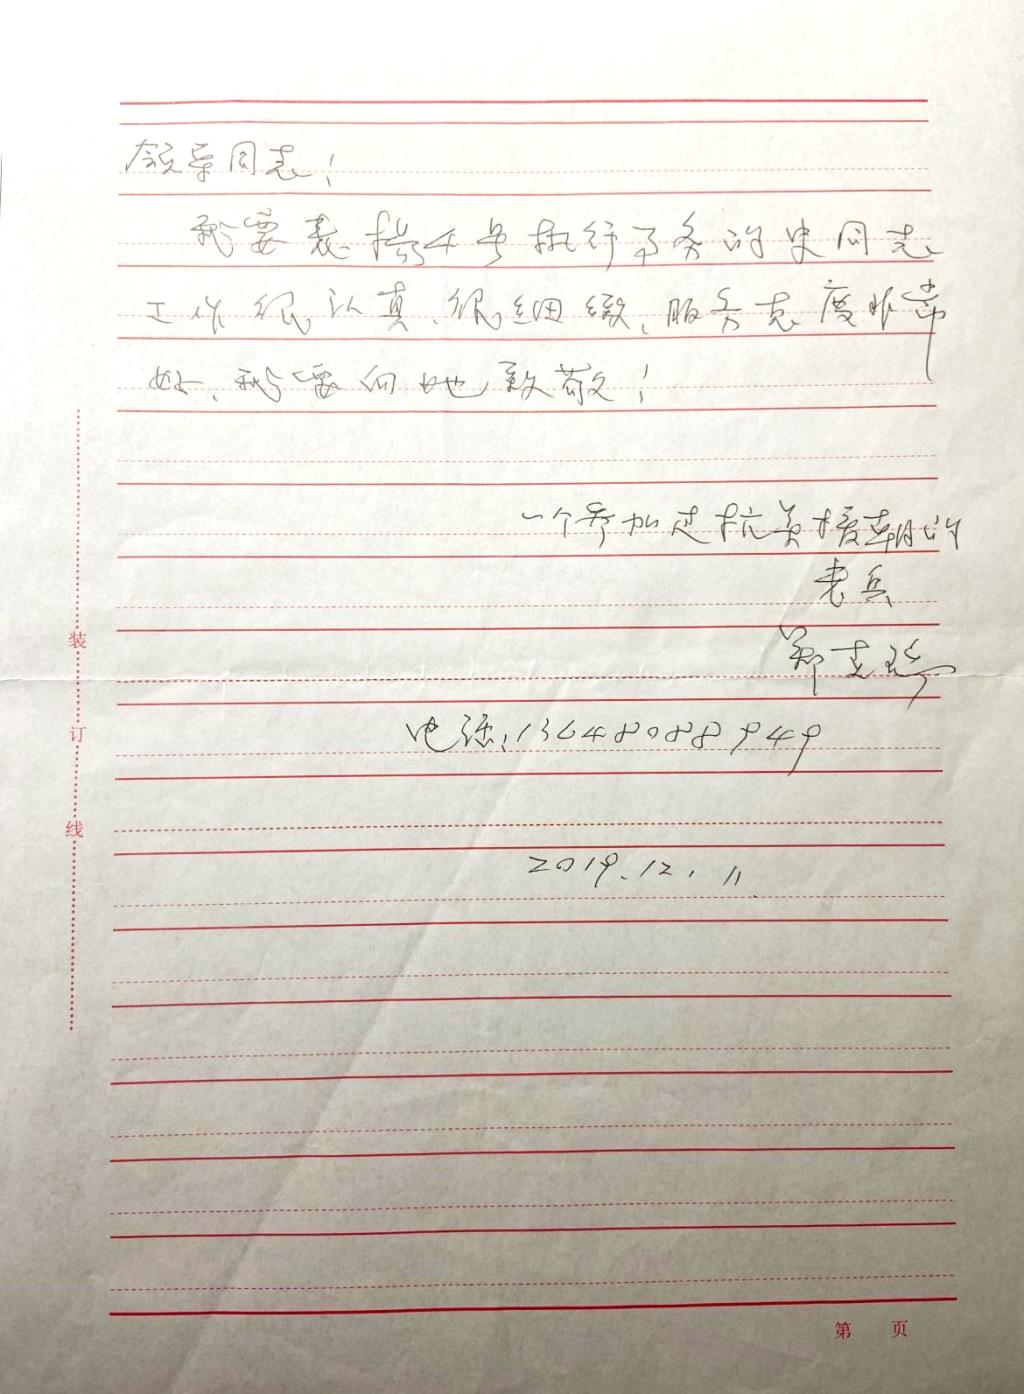 领导同志！
我要表扬4号执行事务的史同志
工作很认真、很细致、服务态度非常
好、我要向她致敬！
一个参加过抗美援朝的
老兵
郑支
电话:13648088949
2019.12.11
装
订
线
第 页